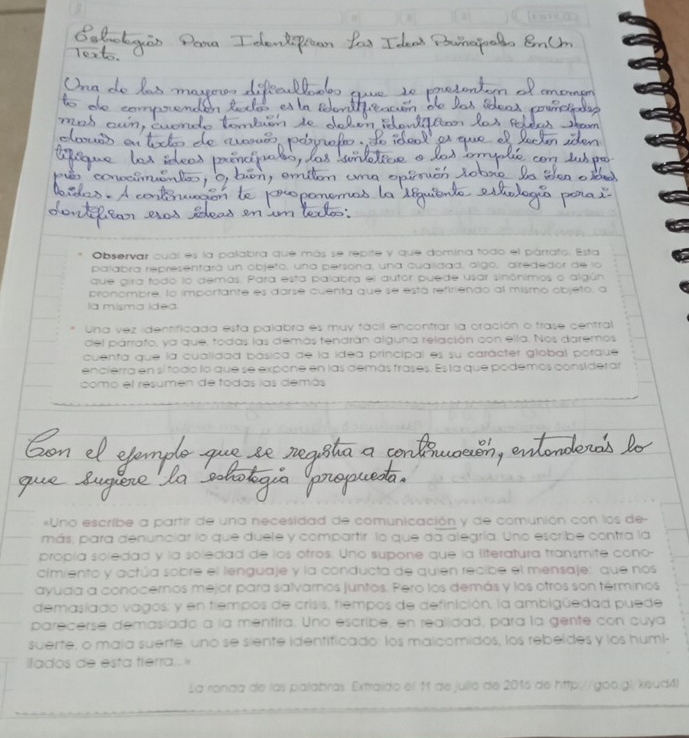 Estrategias Para Identificar Las Ideas Principales En Un
Texto.
Una de las mayores dificultades que se presentan al momen
to de comprender textos es la identificación de las ideas principales
mas aun, cuando tambien se deben identificar las ideas secun
darias en textos de varios párrafos. Lo ideal es que el lector iden
tifique las ideas principales, las sintetice o las amplie con sus pro-
pios conocimientos, o, bien, emitan una opinión sobre la idea o ideas
leidas. A continuación te proponemos la siguiente estrategia para i-
dentificar esas ideas en un texto:
• Observar cuál es la palabra que más se repite y que domina todo el párrafo. Esta
palabra representará un objeto, una persona, una cualidad, algo, alrededor de lo
que gira todo lo demás. Para esta palabra el autor puede usar sinónimos o algún
pronombre, lo importante es darse cuenta que se está refiriendo al mismo objeto, a
la misma idea.
• Una vez identificada esta palabra es muy fácil encontrar la oración o frase central
del párrafo, ya que, todas las demás tendrán alguna relación con ella. Nos daremos
cuenta que la cualidad básica de la idea principal es su carácter global porque
encierra en sí todo lo que se expone en las demás frases. Es la que podemos considerar
como el resumen de todas las demás
Con el ejemplo que se registra a continuación, entenderás lo
que sugiere la estrategia propuesta.
«Uno escribe a partir de una necesidad de comunicación y de comunión con los de-
más, para denunciar lo que duele y compartir lo que da alegría. Uno escribe contra la
propia soledad y la soledad de los otros. Uno supone que la literatura transmite cono-
cimiento y actúa sobre el lenguaje y la conducta de quien recibe el mensaje; que nos
ayuda a conocernos mejor para salvarnos juntos. Pero los demás y los otros son términos
demasiado vagos; y en tiempos de crisis, tiempos de definición, la ambigüedad puede
parecerse demasiado a la mentira. Uno escribe, en realidad, para la gente con cuya
suerte, o mala suerte, uno se siente identificado: los malcomidos, los rebeldes y los humi-
llados de esta tierra...»
La ronda de las palabras. Extraído el 11 de julio de 2016 de